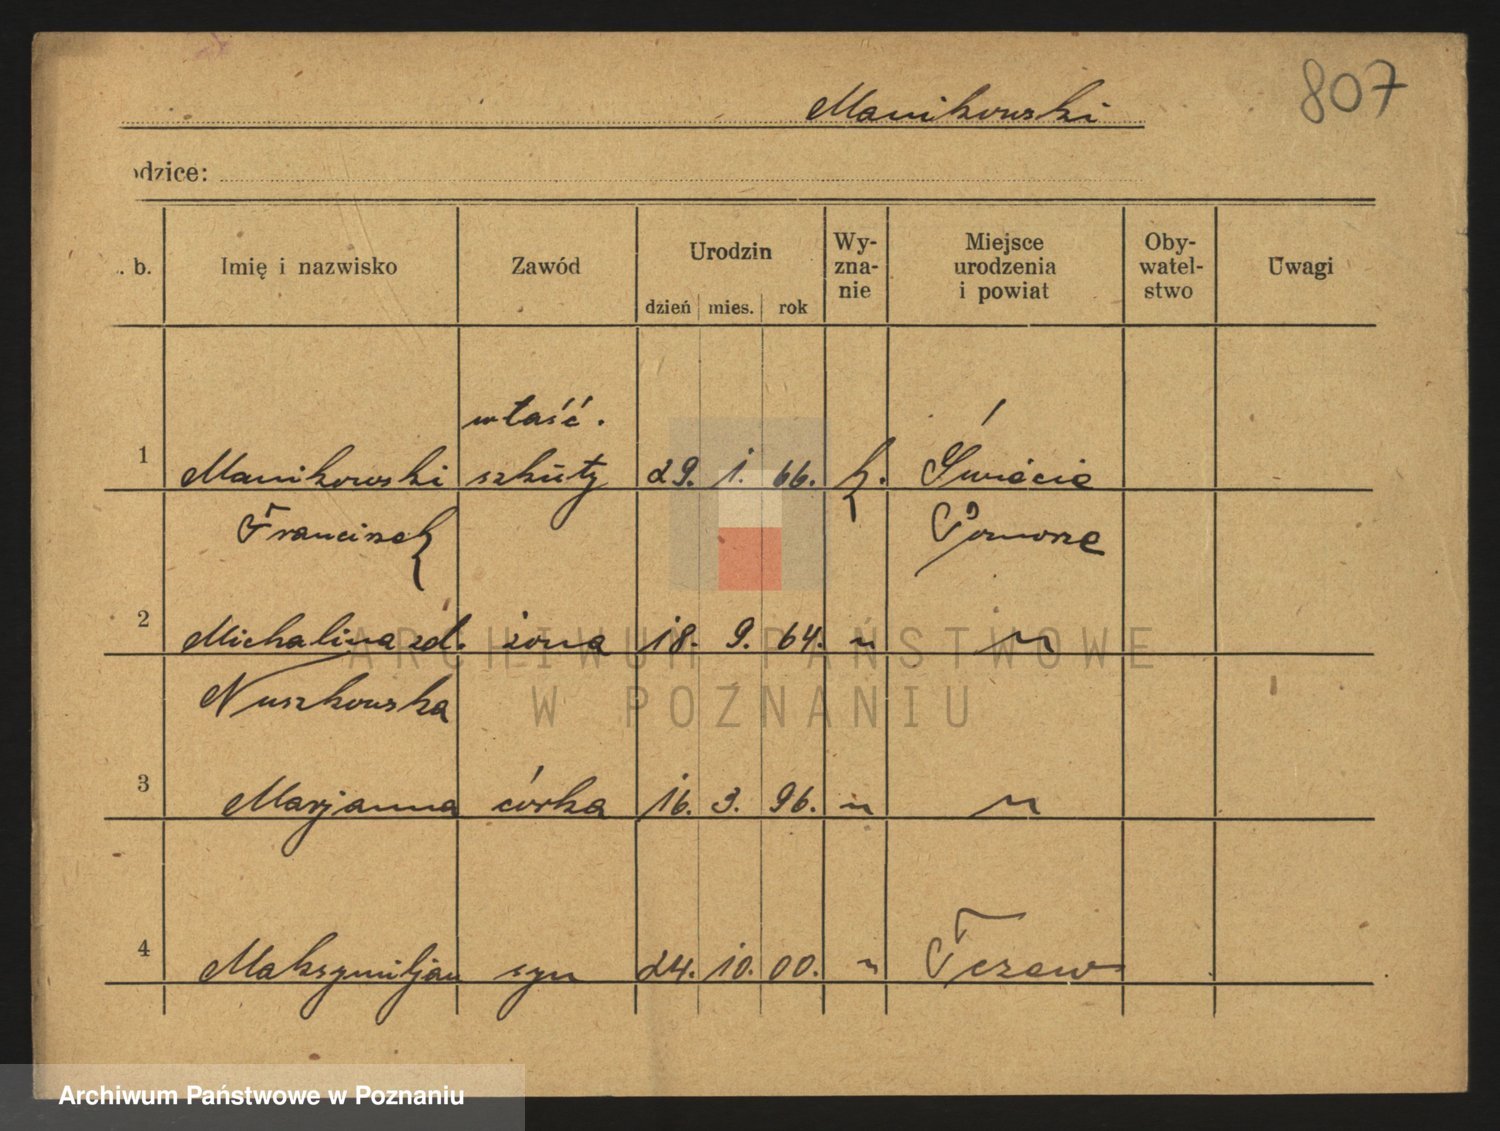 807
Manikowski
odzice:
. b. Imię i nazwisko Zawód Urodzin dzień mies. rok Wy-zna-nie Miejsce urodzenia i powiat Oby-watel-stwo Uwagi
właść.
1 Manikowski szkuty 29. 1. 66. k. Świecie
Franciszek Pomorze
2 Michalina zd. żona 18. 9. 64. " "
Nuszkowska
3 Marjanna córka 16. 3. 96. " "
4 Maksymiljan syn 24. 10. 00. " Tczew
ARCHIWUM PAŃSTWOWE
W POZNANIU
Archiwum Państwowe w Poznaniu